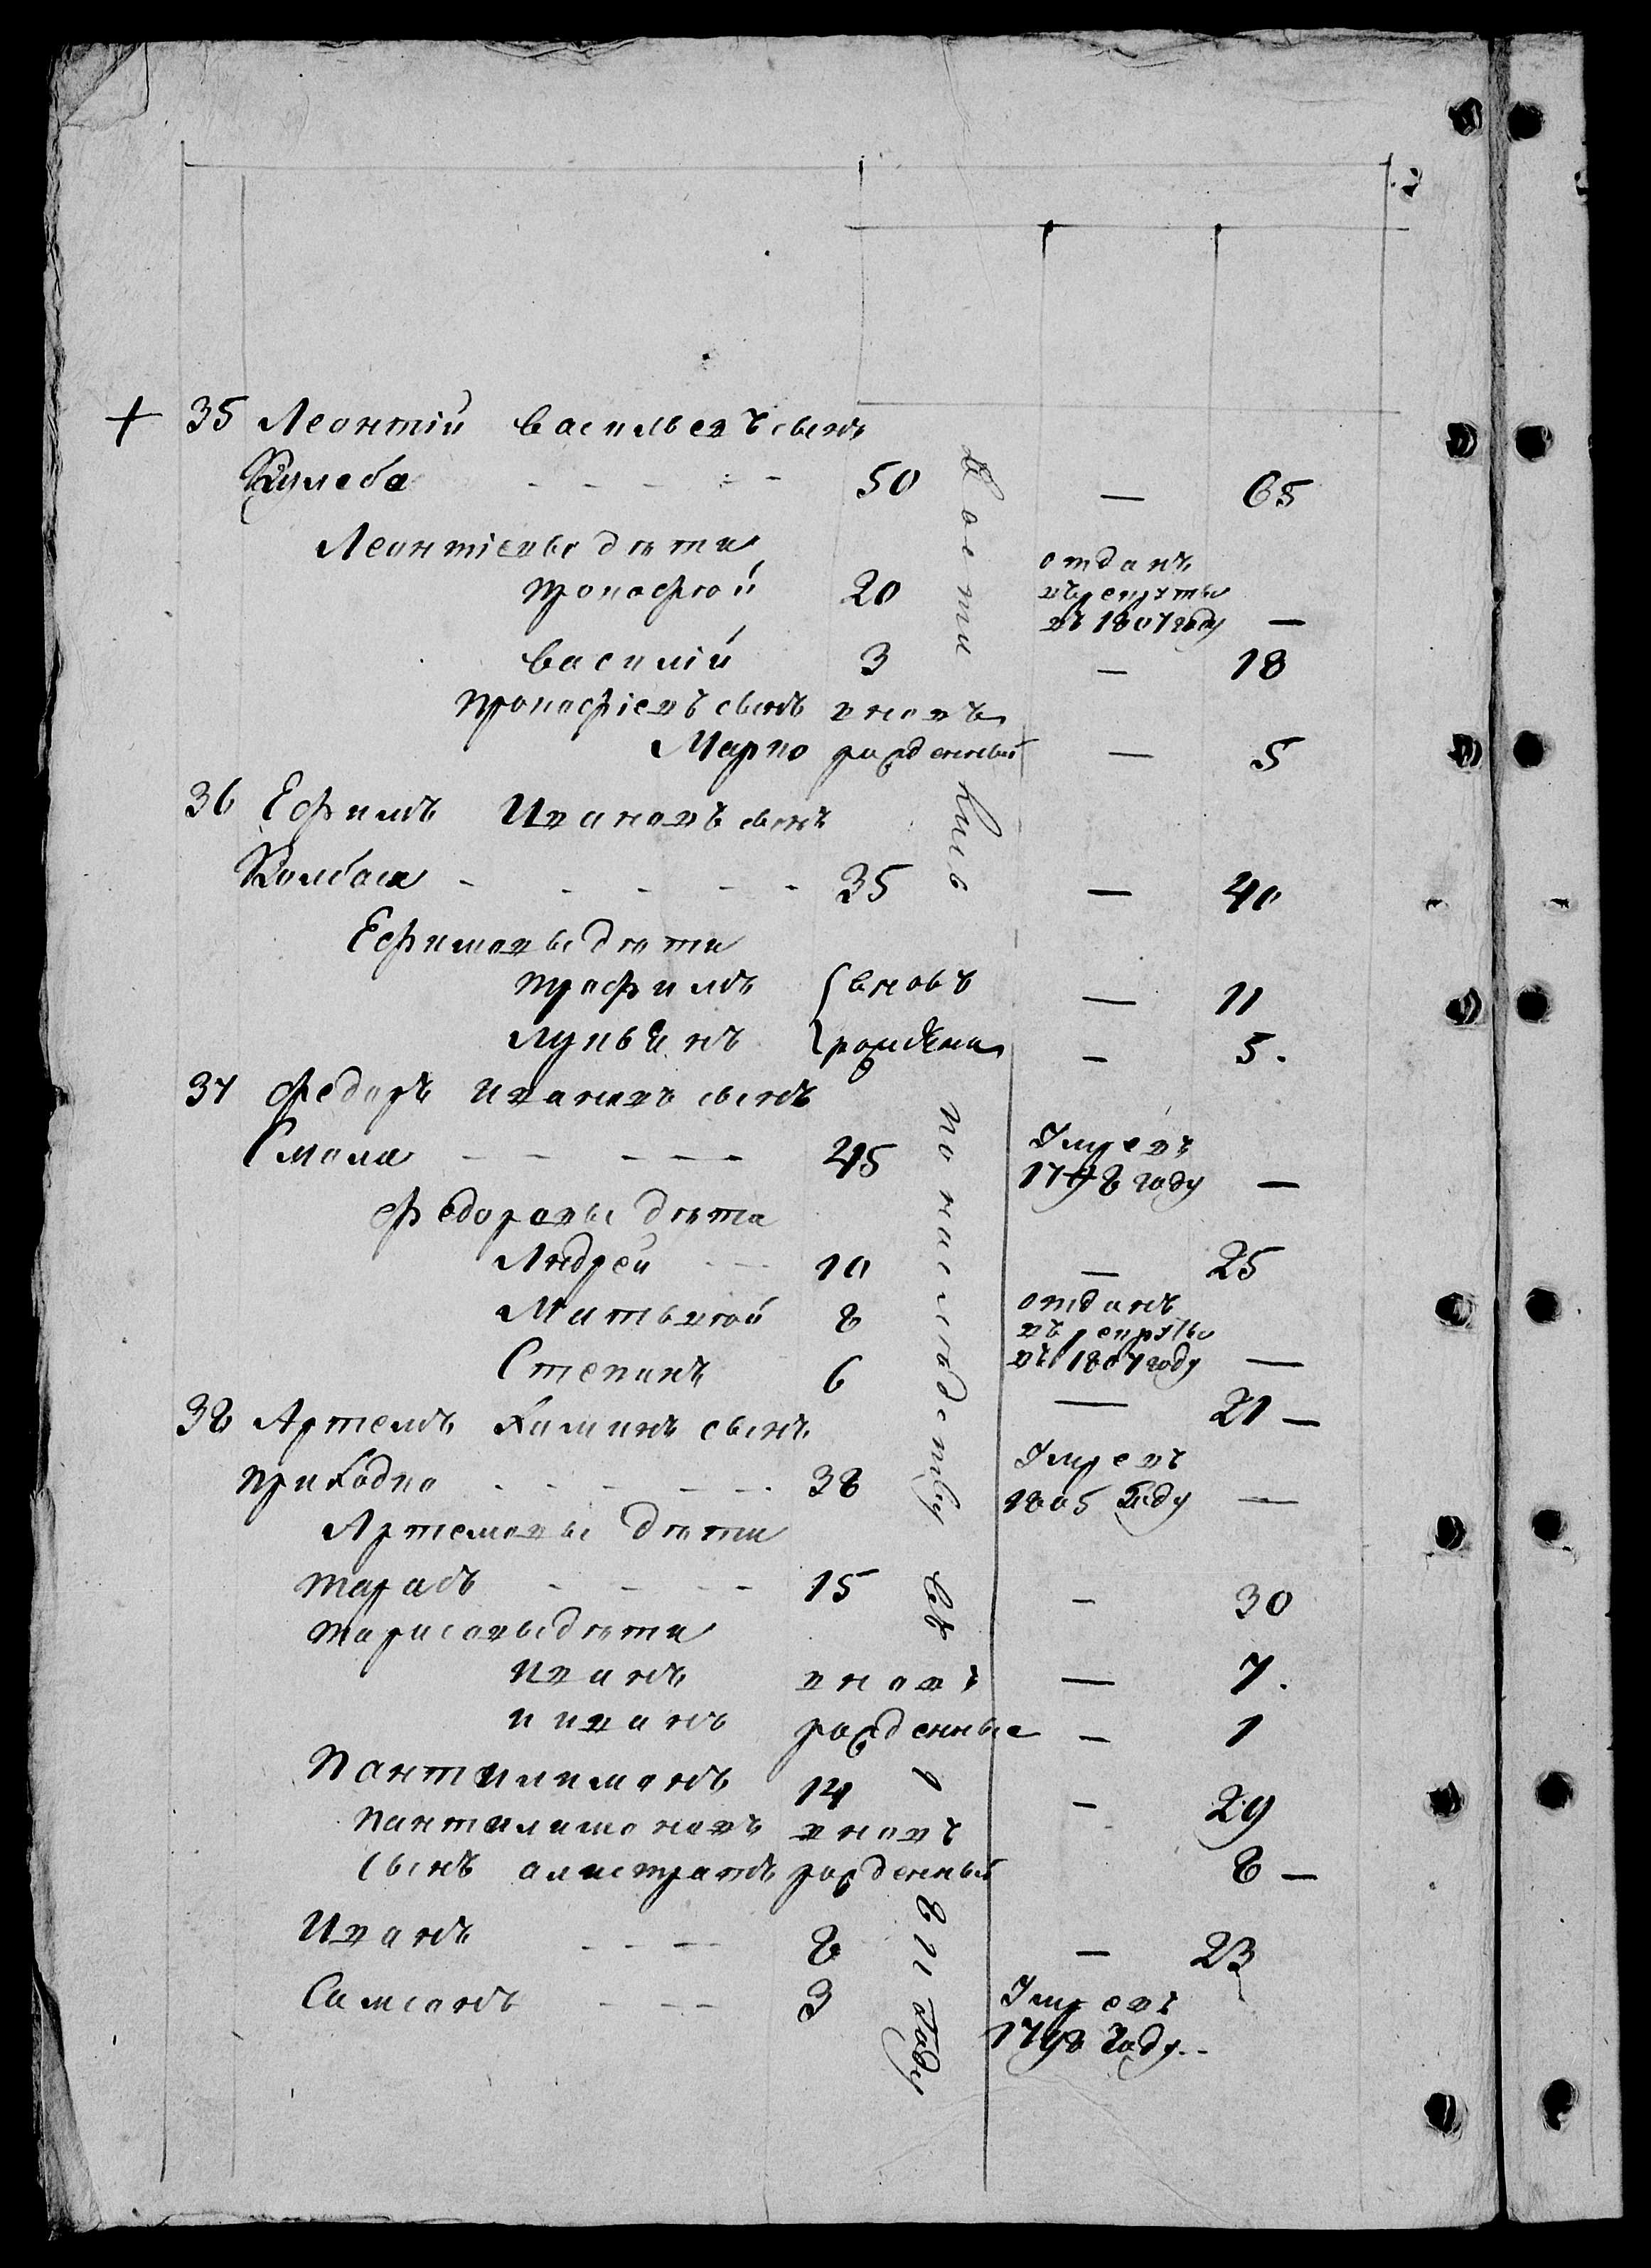 35 Леонтiй васильевъ сынъ
Кулеба - - - - - 50 — 65
Леонтiевы дѣти
прокофѣй 20 отданъ
въ рекруты
въ 1807 году —
василiй 3 — 18
прокофiевъ сынъ вновь
Марко рожденный — 5
36 Ефимъ Ивановъ сынъ
Колбаса - - - - - 35 — 40
Ефимовы дѣти
трофимъ вновь — 11
лукьянъ рождены — 5.
37 федоръ ивановъ сынъ
Смола - - - - - 45 Умре въ
1798 году —
федоровы дѣти
Андрей - - 10 — 25
Матьвѣй 8 отданъ
въ рекруты
въ 1807 году —
Степанъ 6 — 21 —
38 Артемъ сынъ
приходко - - - - - 38 Умре въ
1805 Году —
Артемовы дѣти
тарасъ - - - - 15 — 30
тарасовы дѣти
иванъ вновь — 7.
и иванъ рожденные — 1
Пантилимонъ 14 — 29
пантилимоновъ вновь
сынъ рожденный 8 —
Иванъ - - - 8 — 23
Самсонъ - - - 3 Умре въ
1798 Году. -
по наследству въ
Году